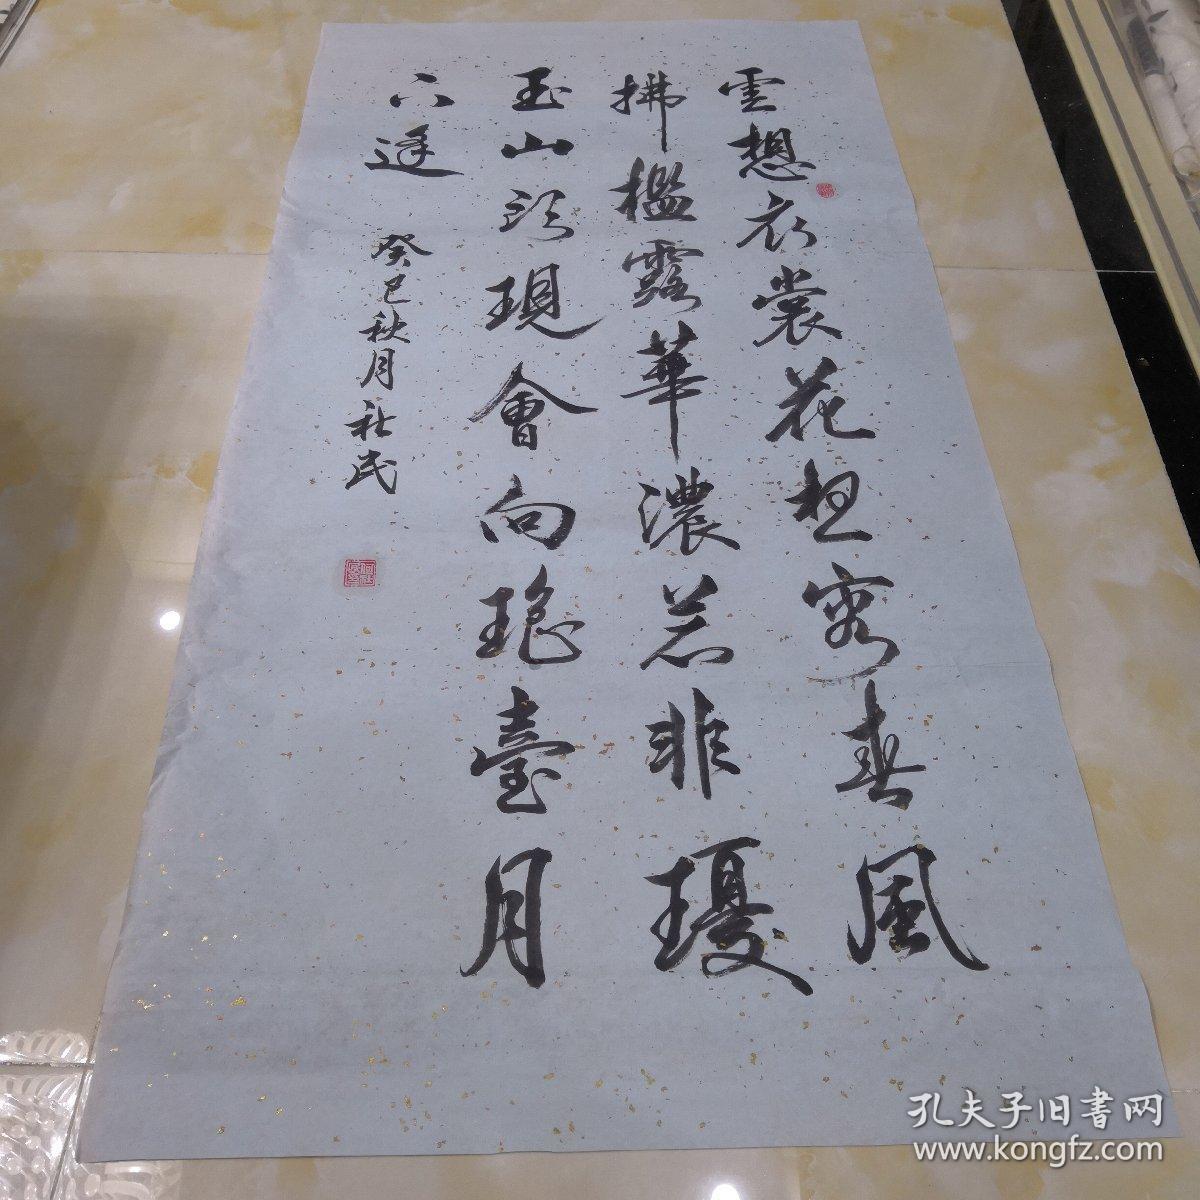 雲想衣裳花想容春風
拂檻露華濃若非瓊
玉山頭現會向瑤臺月
下逢 癸巳秋月 社民
孔夫子旧書网
www.kongfz.com